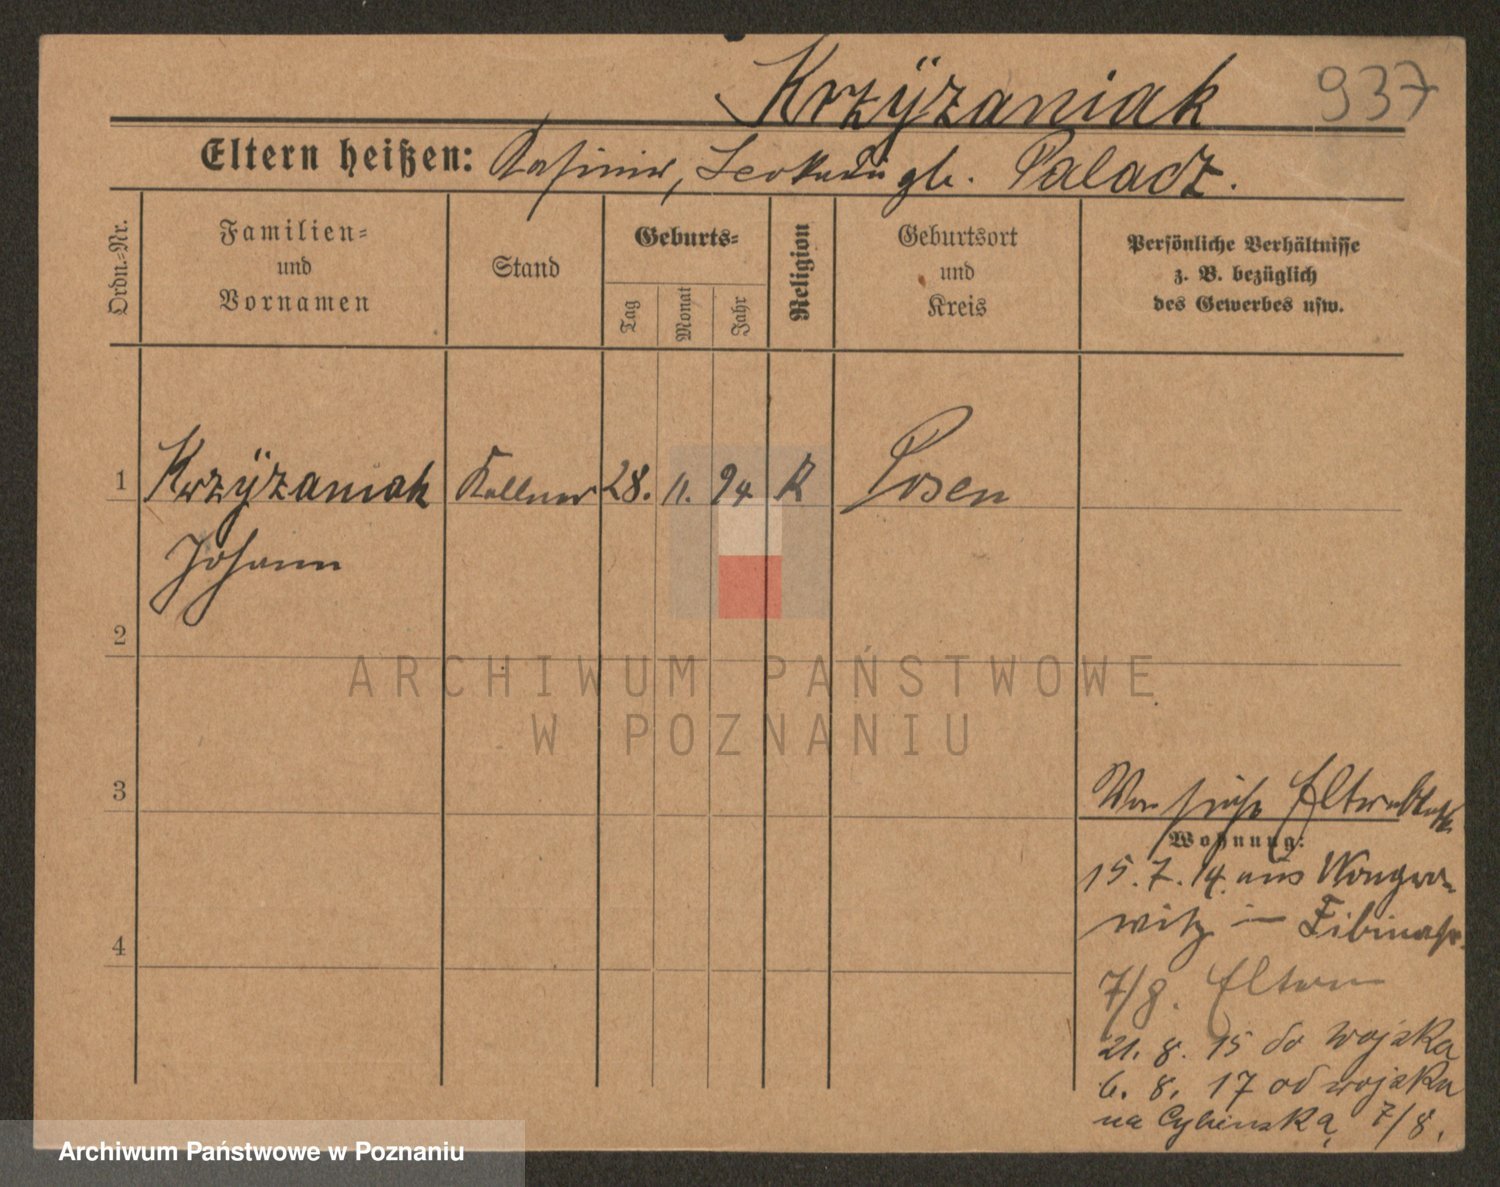 Krzÿżaniak 937
Eltern heißen: Kasimir, Leokadia gb. Palacz.
Ordn.=Nr.
Familien=
und
Vornamen
Stand
Geburts=
Tag
Monat
Jahr
Religion
Geburtsort
und
Kreis
Persönliche Verhältnisse
z. B. bezüglich
des Gewerbes usw.
1 Krzÿżaniak Kellner 28. 11. 94 K Posen
Johann
2
ARCHIWUM PAŃSTWOWE
W POZNANIU
3
Von früher Elternblatt
Wohnung:
15. 7. 14. aus Wongro-
witz in
4
7/8. Eltern
21. 8. 15 do wojska
6. 8. 17 od wojska
na Cybinską 7/8.
Archiwum Państwowe w Poznaniu